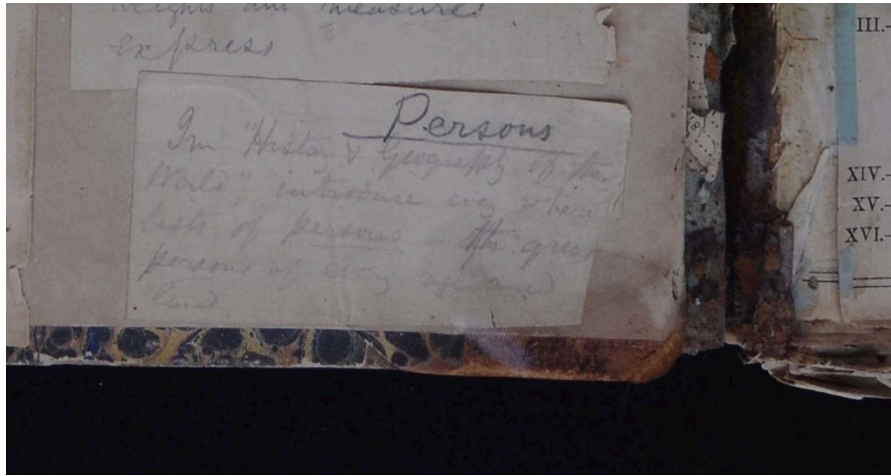 weights and measures
express
Persons
In "History & Geography of the
World," introduce every where
lists of persons the great
persons of every age and
land
III.-
XIV.-
XV.-
XVI.-